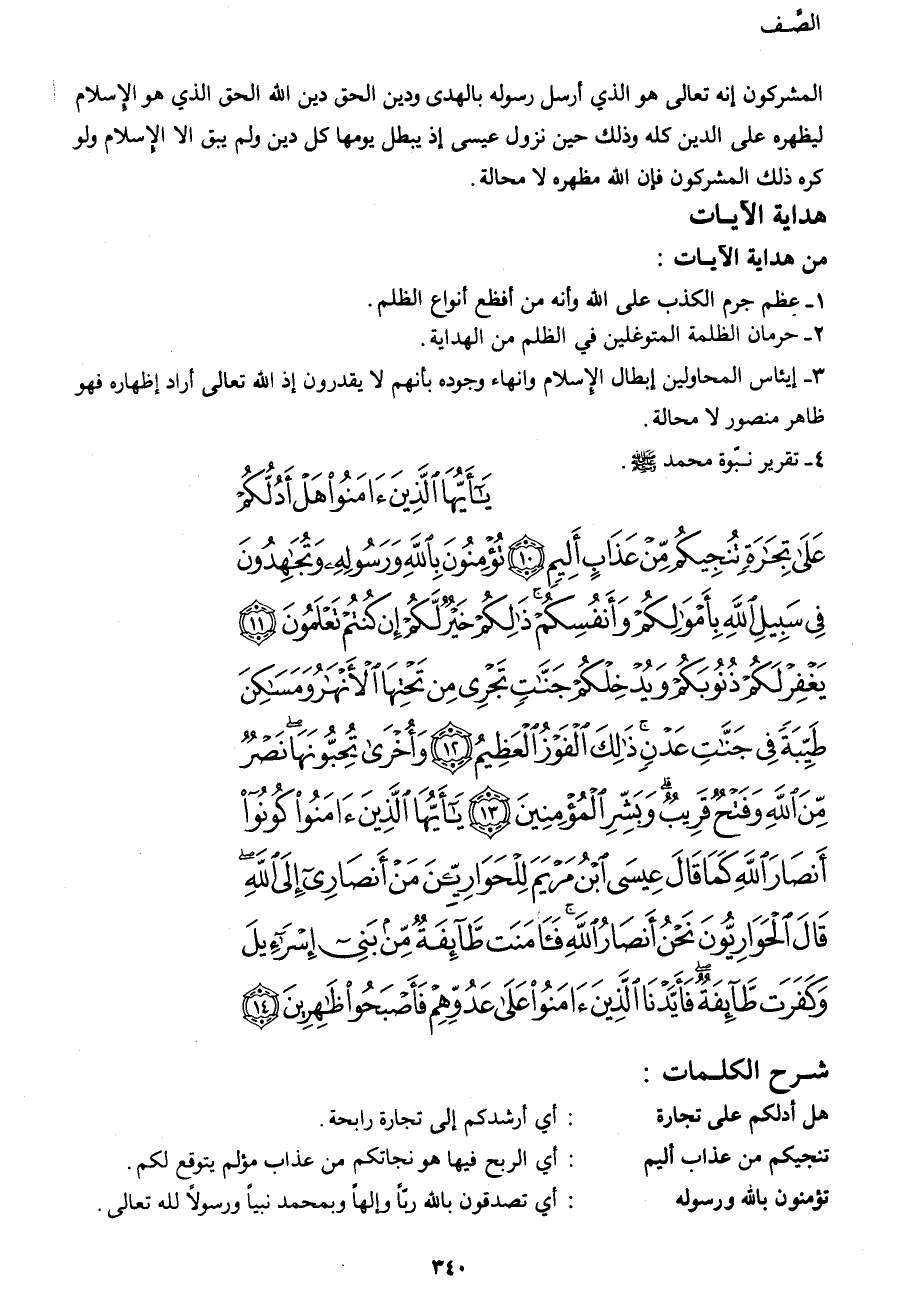 الصَّـف
المشركون إنه تعالى هو الذي أرسل رسوله بالهدى ودين الحق دين الله الحق الذي هو الإسلام
ليظهره على الدين كله وذلك حين نزول عيسى إذ يبطل يومها كل دين ولم يبق الا الإسلام ولو
كره ذلك المشركون فإن الله مظهره لا محالة .
هداية الآيـات
من هداية الآيـات :
١ـ عظم جرم الكذب على الله وأنه من أفظع أنواع الظلم .
٢ـ حرمان الظلمة المتوغلين في الظلم من الهداية .
٣ـ إيئاس المحاولين إبطال الإسلام وانهاء وجوده بأنهم لا يقدرون إذ الله تعالى أراد إظهاره فهو
ظاهر منصور لا محالة .
٤ـ تقرير نبّوة محمد ﷺ .
يَٰٓأَيُّهَا ٱلَّذِينَ ءَامَنُوا۟ هَلْ أَدُلُّكُمْ
عَلَىٰ تِجَٰرَةٍ تُنجِيكُم مِّنْ عَذَابٍ أَلِيمٍ ١٠ تُؤْمِنُونَ بِٱللَّهِ وَرَسُولِهِۦ وَتُجَٰهِدُونَ
فِى سَبِيلِ ٱللَّهِ بِأَمْوَٰلِكُمْ وَأَنفُسِكُمْ ۚ ذَٰلِكُمْ خَيْرٌ لَّكُمْ إِن كُنتُمْ تَعْلَمُونَ ١١
يَغْفِرْ لَكُمْ ذُنُوبَكُمْ وَيُدْخِلْكُمْ جَنَّٰتٍ تَجْرِى مِن تَحْتِهَا ٱلْأَنْهَٰرُ وَمَسَٰكِنَ
طَيِّبَةً فِى جَنَّٰتِ عَدْنٍ ۚ ذَٰلِكَ ٱلْفَوْزُ ٱلْعَظِيمُ ١٢ وَأُخْرَىٰ تُحِبُّونَهَا ۖ نَصْرٌ
مِّنَ ٱللَّهِ وَفَتْحٌ قَرِيبٌ ۗ وَبَشِّرِ ٱلْمُؤْمِنِينَ ١٣ يَٰٓأَيُّهَا ٱلَّذِينَ ءَامَنُوا۟ كُونُوٓا۟
أَنصَارَ ٱللَّهِ كَمَا قَالَ عِيسَى ٱبْنُ مَرْيَمَ لِلْحَوَارِيِّۦنَ مَنْ أَنصَارِىٓ إِلَى ٱللَّهِ ۖ
قَالَ ٱلْحَوَارِيُّونَ نَحْنُ أَنصَارُ ٱللَّهِ ۖ فَـَٔامَنَت طَّآئِفَةٌ مِّنۢ بَنِىٓ إِسْرَٰٓءِيلَ
وَكَفَرَت طَّآئِفَةٌ ۖ فَأَيَّدْنَا ٱلَّذِينَ ءَامَنُوا۟ عَلَىٰ عَدُوِّهِمْ فَأَصْبَحُوا۟ ظَٰهِرِينَ ١٤
شـرح الكلـمات :
هل أدلكم على تجارة : أي أرشدكم إلى تجارة رابحة .
تنجيكم من عذاب أليم : أي الربح فيها هو نجاتكم من عذاب مؤلم يتوقع لكم .
تؤمنون بالله ورسوله : أي تصدقون بالله ربّاً وإلهاً وبمحمد نبياً ورسولاً لله تعالى .
٣٤٠